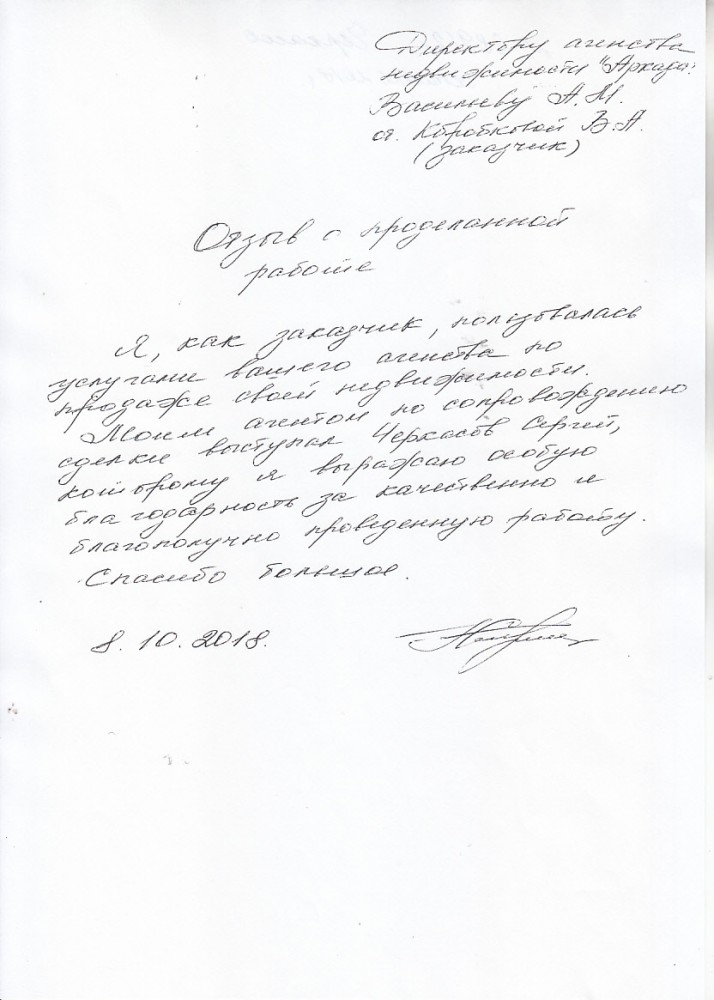 Директору агенства
недвижимости "Аркада"
Васильеву А.М.
от Коробковой В.А.
(заказчик)
Отзыв о проделанной
работе
Я, как заказчик, пользовалась
услугами вашего агенства по
продаже своей недвижимости.
Моим агентом по сопровождению
сделки выступал Черкасов Сергей,
которому я выражаю особую
благодарность за качественно и
благополучно проведенную работу.
Спасибо большое.
8.10.2018.